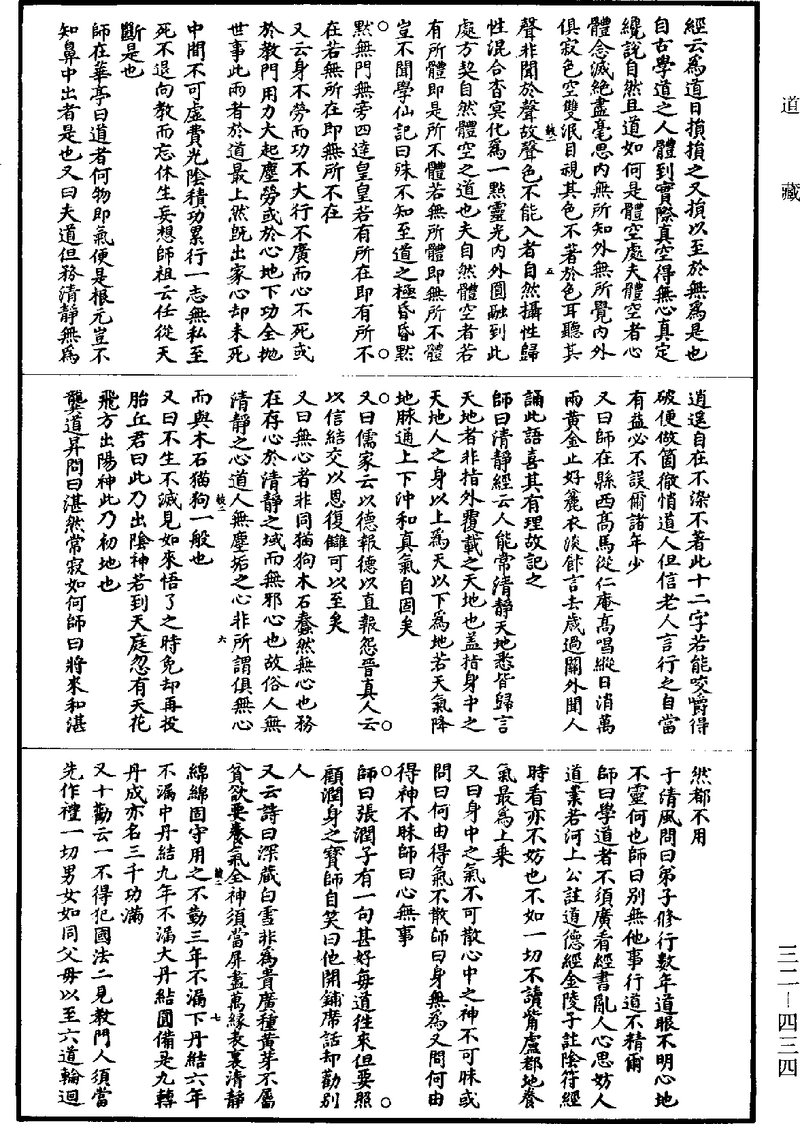 道藏
經云為道日損損之又損以至於無為是也
自古學道之人體到實際真空得無心真定
纔說自然且道如何是體空處夫體空者心
體念滅絕盡毫思內無所知外無所覺內外
俱寂色空雙泯目視其色不著於色耳聽其
聲非聞於聲故聲色不能入者自然攝性歸
性混合杳冥化為一點靈光內外圓融到此
處方契自然體空之道也夫自然體空者若
有所體即是所不體若無所體即無所不體
豈不聞學仙記曰殊不知至道之極昏昏默
默無門無旁四達皇皇若有所在即有所不
在若無所在即無所不在
又云身不勞而功不大行不廣而心不死或
於教門用力大起塵勞或於心地下功全拋
世事此兩者於道最上然既出家心却未死
中間不可虛費光陰積功累行一志無私至
死不退向教而忘休生妄想師祖云任從天
斷是也
師在華亭曰道者何物即氣便是根元豈不
知鼻中出者是也又曰夫道但務清靜無為
逍遥自在不染不著此十二字若能咬嚼得
破便做箇徹悄道人但信老人言行之自當
有益必不誤爾諸年少
又曰師在縣西高馬從仁庵高唱縱日消萬
兩黃金止好麄衣淡飰言去歲過關外聞人
誦此語喜其有理故記之
師曰清靜經云人能常清靜天地悉皆歸言
天地者非指外覆載之天地也蓋指身中之
天地人之身以上為天以下為地若天氣降
地脉通上下沖和真氣自固矣
又曰儒家云以德報德以直報怨晉真人云
以信結交以恩復讎可以至矣
又曰無心者非同猫狗木石蠢然無心也務
在存心於清靜之域而無邪心也故俗人無
清靜之心道人無塵垢之心非所謂俱無心
而與木石猫狗一般也
又曰不生不滅見如來悟了之時免却再投
胎丘君曰此乃出陰神若到天庭忽有天花
飛方出陽神此乃初地也
龔道昇問曰湛然常寂如何師曰將來和湛
然都不用
于清風問曰弟子修行数年道眼不明心地
不靈何也師曰別無他事行道不精爾
師曰學道者不須廣看經書亂人心思妨人
道業若河上公註道德經金陵子註陰符經
時看亦不妨也不如一切不讀觜盧都地養
氣最為上乘
又曰身中之氣不可散心中之神不可昧或
問曰何由得氣不散師曰身無為又問何由
得神不昧師曰心無事
師曰張潤子有一句甚好每道往來但要照
顧潤身之寶師自笑曰他開鋪席話却勸別
人
又云詩曰深藏白雪非為貴廣種黃芽不屬
貧欲要養氣全神須當屏盡萬緣表裏清靜
綿綿固守用之不勤三年不漏下丹結六年
不漏中丹結九年不漏大丹結圓備是九轉
丹成亦名三千功滿
又十勸云一不得犯國法二見教門人須當
先作禮一切男女如同父母以至六道輪迴
三二—四三四